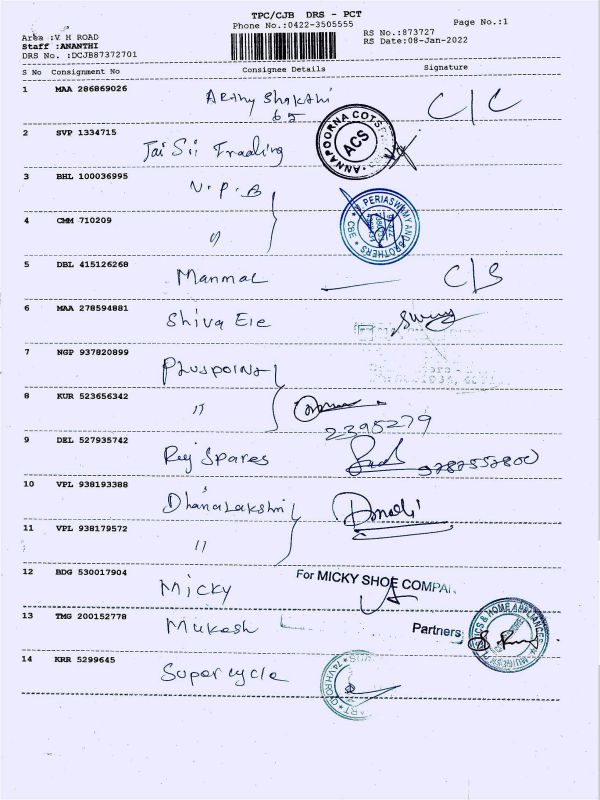 TPC/CJB DRS - PCT
Phone No.:0422-3505555
Page No.:1
Area :V H ROAD
RS No.:873727
Staff :ANANTHI
RS Date:08-Jan-2022
DRS No. :DCJB87372701
S No Consignment No Consignee Details Signature
1 MAA 286869026 Arthy Shakthi C/C
65
ANNAPOORNA COTS
ACS
2 SVP 1334715 Jai Sii Trading
3 BHL 100036995 V.P.B
PERIASWAMY AND BROTHERS
CBE
4 CMM 710209 "
5 DBL 415126268 Manmal C/S
6 MAA 278594881 Shiva Ele
7 NGP 937820899 Pluspoint
8 KUR 523656342 "
2395279
9 DEL 527935742 Raj Spares
9787557800
10 VPL 938193388 Dhanalakshmi
11 VPL 938179572 "
12 BDG 530017904 Micky
For MICKY SHOE COMPAN
13 TMG 200152778 Mukesh
Partners
& HOME APPLIANCES
14 KRR 5299645 Supercycle